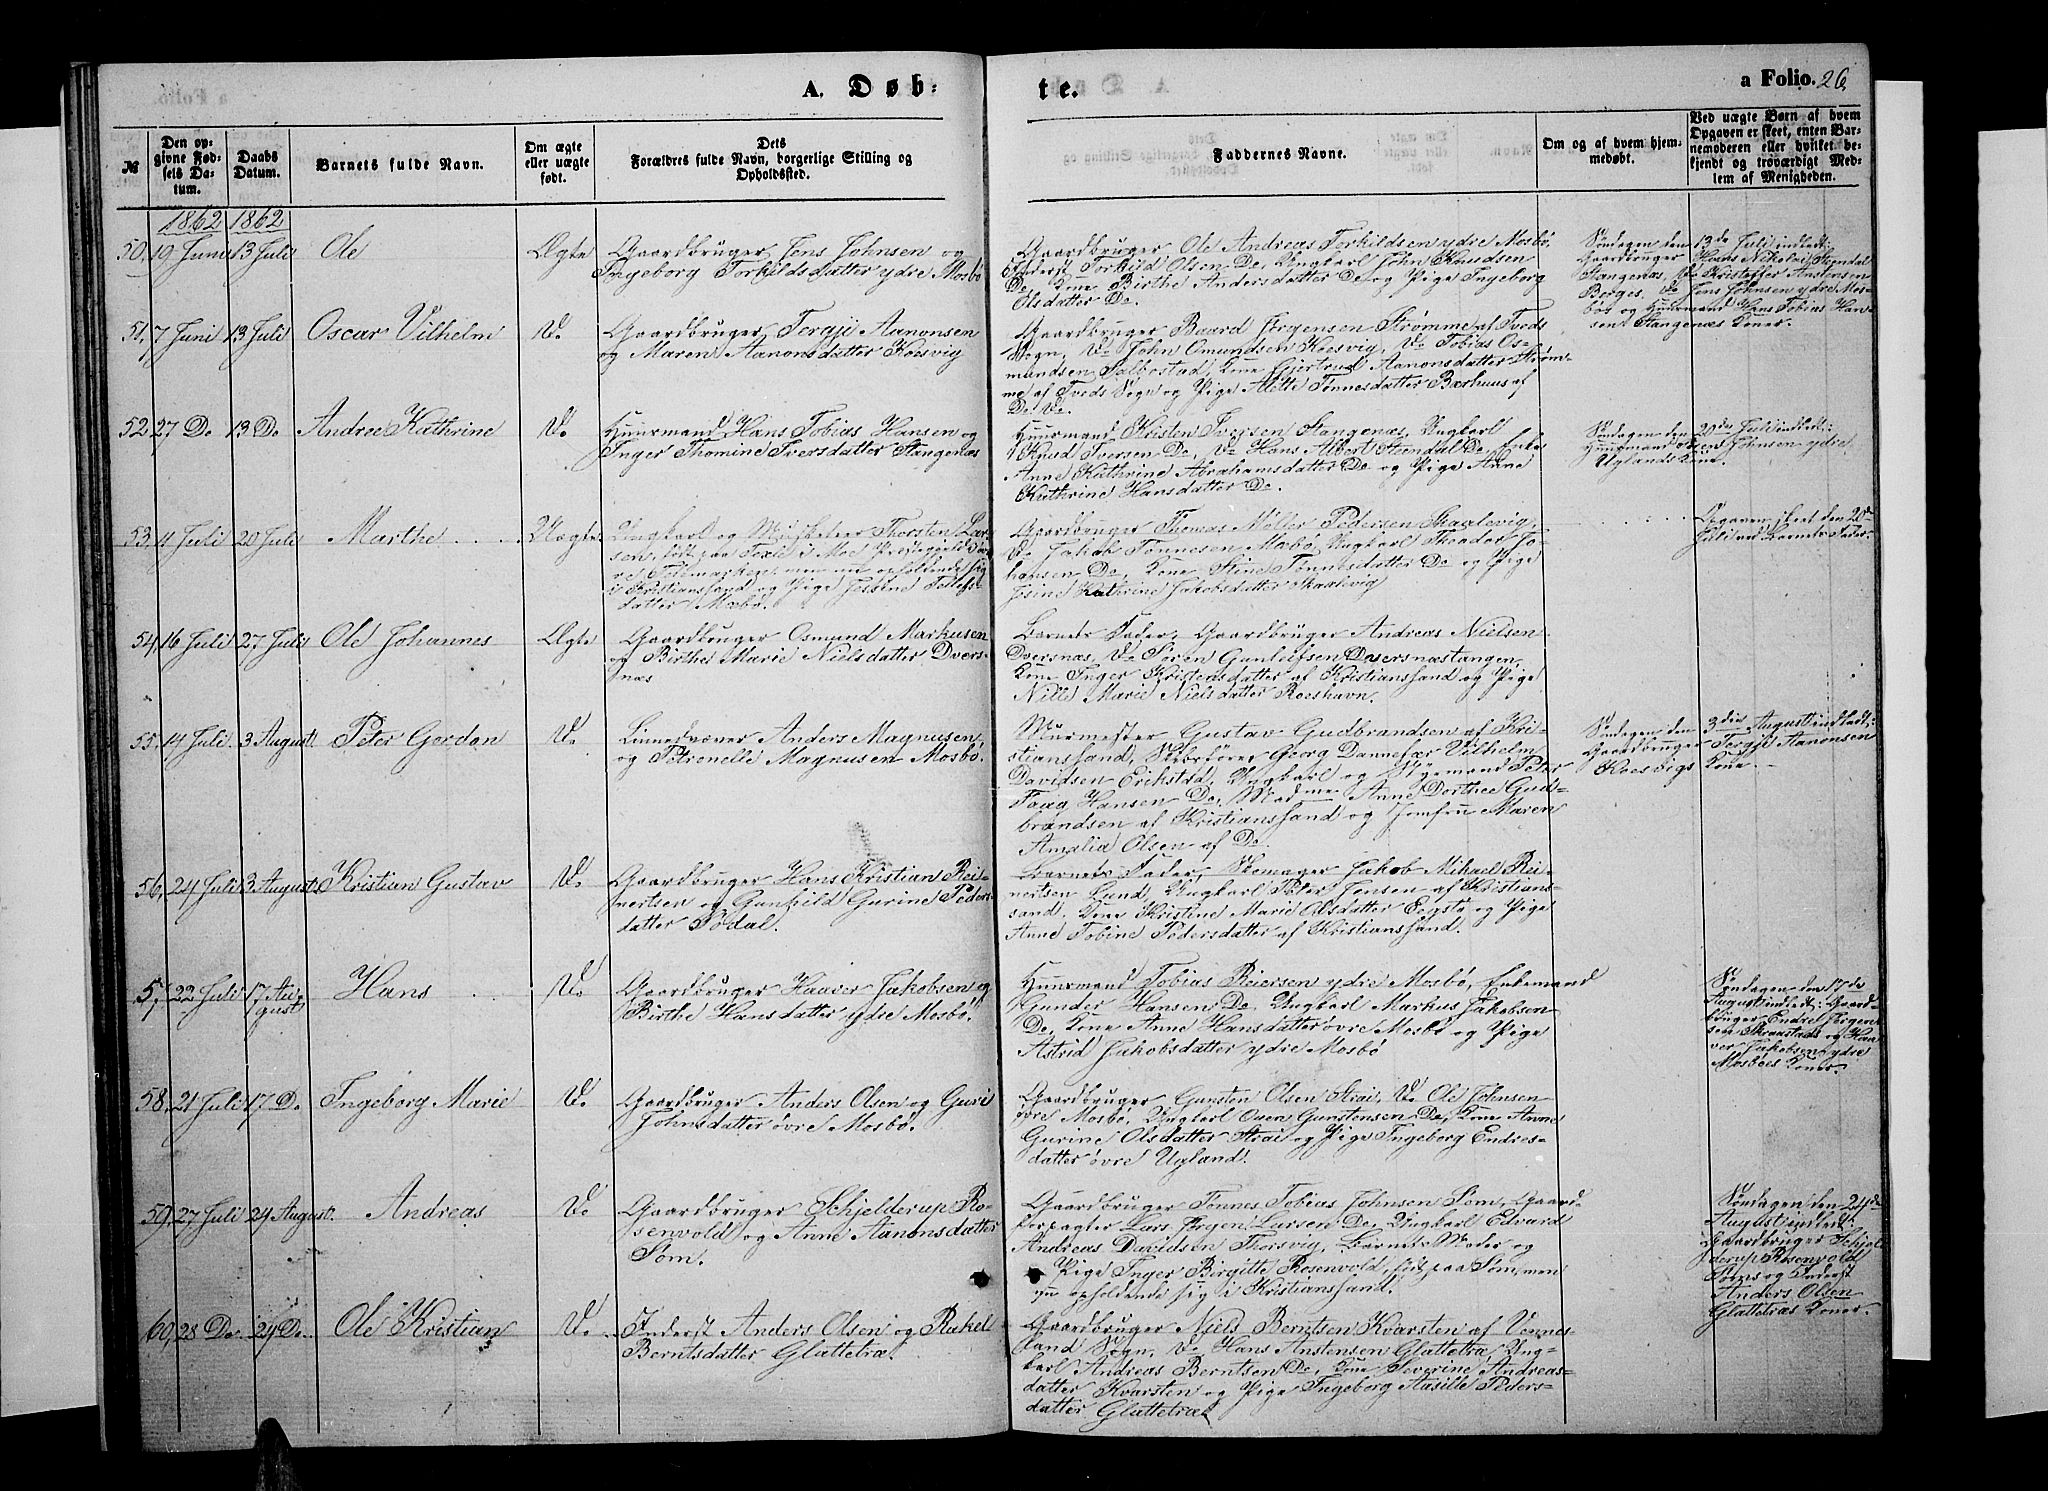 A. Døb=
te.
a Folio. 26
№
Den op-
givne Fød-
sels Da-
tum.
Daabs
Datum.
Barnets fulde Navn.
Om ægte
eller uægte
født.
Dets
Forældres fulde Navn, borgerlige Stilling og
Opholdssted.
Faddernes Navne.
Om og af hvem hjem-
medøbt.
Ved uægte Børn af hvem
Opgaven er skeet, enten Bar-
nemoderen eller hvilket be-
kjendt og troværdigt Med-
lem af Menigheden.
1862 1862
50, 19 Juni 13 Juli Ole Ægte
Gaardbruger Jens Johnsen og
Ingeborg Torkildsdatter ydre Mosbø
Gaardbruger Ole Andreas Torkildsen ydre Mosbø,
Inderst Torkild Olsen Do, Ungkarl John Knudsen
Do, Kone Birthe Andersdatter Do og Pige Ingeborg
Olsdatter Do.
Søndagen den 13de Juli indledt:
Gaardbruger Hans Nikolai Stendal
Stangenæs, Do Kristoffer Anstensen
Borges, Do Jens Johnsen ydre Mos-
bø og Huurmand Hans Tobias Han-
sen Stangenæs Koner.
51, 7 Juni 13 Juli Oscar Vilhelm Do
Gaardbruger Tergji Aanonsen
og Maren Aanonsdatter Koesvig
Gaardbruger Baard Jørgensen Strømme af Tveds
Sogn, Do John Omundsen Koesvig, Do Tobias Os-
mundsen Salbostad, Kone Gjertrud Aanonsdatter Strøm-
me af Tveds Sogn og Pige Alette Tønnesdatter Bærhuus af
Do Do.
52 27 Do 13 Do Andrea Kathrine Do
Huurmand Hans Tobias Hansen og
Inger Thomine Iversdatter Stangenæs
Huurmand Kristen Iversen Stangenæs, Ungkarl
Knud Iversen Do, Do Hans Albert Stendal Do, Enke
Anne Kathrine Abrahamsdatter Do og Pige Anne
Kathrine Hansdatter Do.
Søndagen den 20de Juli indledt:
Huurmand Johnsen ydre
Uglands Kone.
53, 11 Juli 20 Juli Marthe Uægte
Ungkarl og Musketeer Thorsten Lar-
sen, født paa i Moe Præstegjeld
Tellemarken, men nu opholdende sig
i Kristianssand og Pige Jessine Tellefs-
datter Mæbø.
Gaardbruger Thomas Møller Pedersen Skaalevig,
Do Jakob Tønnesen Mæbø, Ungkarl Theodor Jo-
hansen Do, Kone Stine Tønnesdatter Do og Pige
Josine Kathrine Jakobsdatter Skaalevig
Opgaven skeet den 20de
Juli ved Barnets Fader.
54, 16 Juli 27 Juli Ole Johannes Ægte
Gaardbruger Osmund Markusen
og Birthe Marie Nielsdatter Dvers-
næs
Barnets Fader, Gaardbruger Andreas Nielsen
Dversnæs, Do Søren Guntelfsen Dversnæstangen,
Kone Inger Kristensdatter af Kristianssand og Pige
Nille Marie Nielsdatter Roeshavn.
55, 14 Juli. 3 August. Peter Gordon Do
Linnedvæver Anders Magnusen
og Petronelle Magnusen Mosbø.
Murmester Gustav Gudbrandsen af Kri-
stianssand, Skibsfører Georg Dannefær Vilhelm
Davidsen Eikstad, Ungkarl og Styrmand Peter
Hansen Do, Madme Anne Dorthee Gud-
brandsen af Kristianssand og Jomfru Maren
Amalia Olsen af Do.
Søndagen den 3die August indledt:
Gaardbruger Tergji Aanonsen
Koesvigs Kone.
56, 24 Juli 3 August. Kristian Gustav Do
Gaardbruger Hans Kristian Rei-
nertsen og Gunhild Gurine Peders-
datter Sødal.
Barnets Fader, Skomager Jakob Mikael Rei-
nertsen Lund, Ungkarl Peter Jensen af Kristians-
sand, Kone Kristine Marie Olsdatter Eegstø og Pige
Anne Tobine Pedersdatter af Kristianssand.
57, 22 Juli 17 Au-
gust Hans Do
Gaardbruger Haaver Jakobsen og
Birthe Hansdatter ydre Mosbø.
Huurmand Tobias Reiersen ydre Mosbø, Enkemand
Gunder Hansen Do, Ungkarl Markus Jakobsen
Do, Kone Anne Hansdatter øvre Mosbø og Pige
Astrid Jakobsdatter ydre Mosbø
Søndagen den 17de
August indledt: Gaard-
bruger Endre Jørgen-
sen Straastads og Haa-
ver Jakobsen ydre
Mosbøes Koner.
58, 21 Juli 17 Do. Ingeborg Marie Do
Gaardbruger Anders Olsen og Guri
Johnsdatter øvre Mosbø.
Gaardbruger Gunsten Olsen Strai, Do Ole Johnsen
øvre Mosbø, Ungkarl Osen Gunstensen Do, Kone Anne
Gurine Olsdatter Strai og Pige Ingeborg Endres-
datter øvre Ugland.
59, 27 Juli 24 August. Andreas Do
Gaardbruger Schjelderup Ro-
senvold og Anne Aanonsdatter
Søm.
Gaardbruger Tønnes Tobias Johnsen Søm, Gaard-
forpagter Lars Jørgen Larsen Do, Ungkarl Edvard
Andreas Davidsen Thorsvig, Barnets Moder og
Pige Inger Birgitte Rosenvold, født paa Søm, men
nu opholdende sig i Kristianssand.
Søndagen den 24de
August indledt:
Gaardbruger Schjel-
derup Rosenvold
Søms og Inderst
Anders Olsen
Glattetræs Koner.
60, 28 Do. 24 Do. Ole Kristian Do
Inderst Anders Olsen og Rakel
Berntsdatter Glattetræ.
Gaardbruger Niels Berntsen Kvarsten af Vennes-
land Sogn, Do Hans Anstensen Glattetræ, Ung-
karl Andreas Berntsen Do, Kone Severine Andreas-
datter Kvarsten og Pige Ingeborg Aasille Peders-
datter Glattetræ